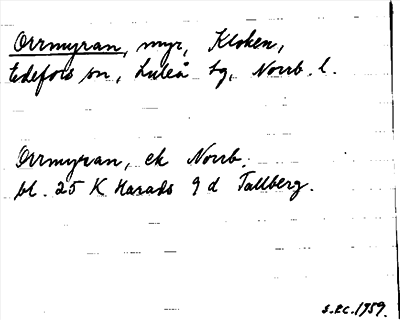 Orrmyran, myr, Kloken,
Edefors sn, Luleå tg, Norrb. l.
Orrmyran, ek Norrb.
bl. 25 K Harads 9 d Tallberg.
S.P.C. 1959.